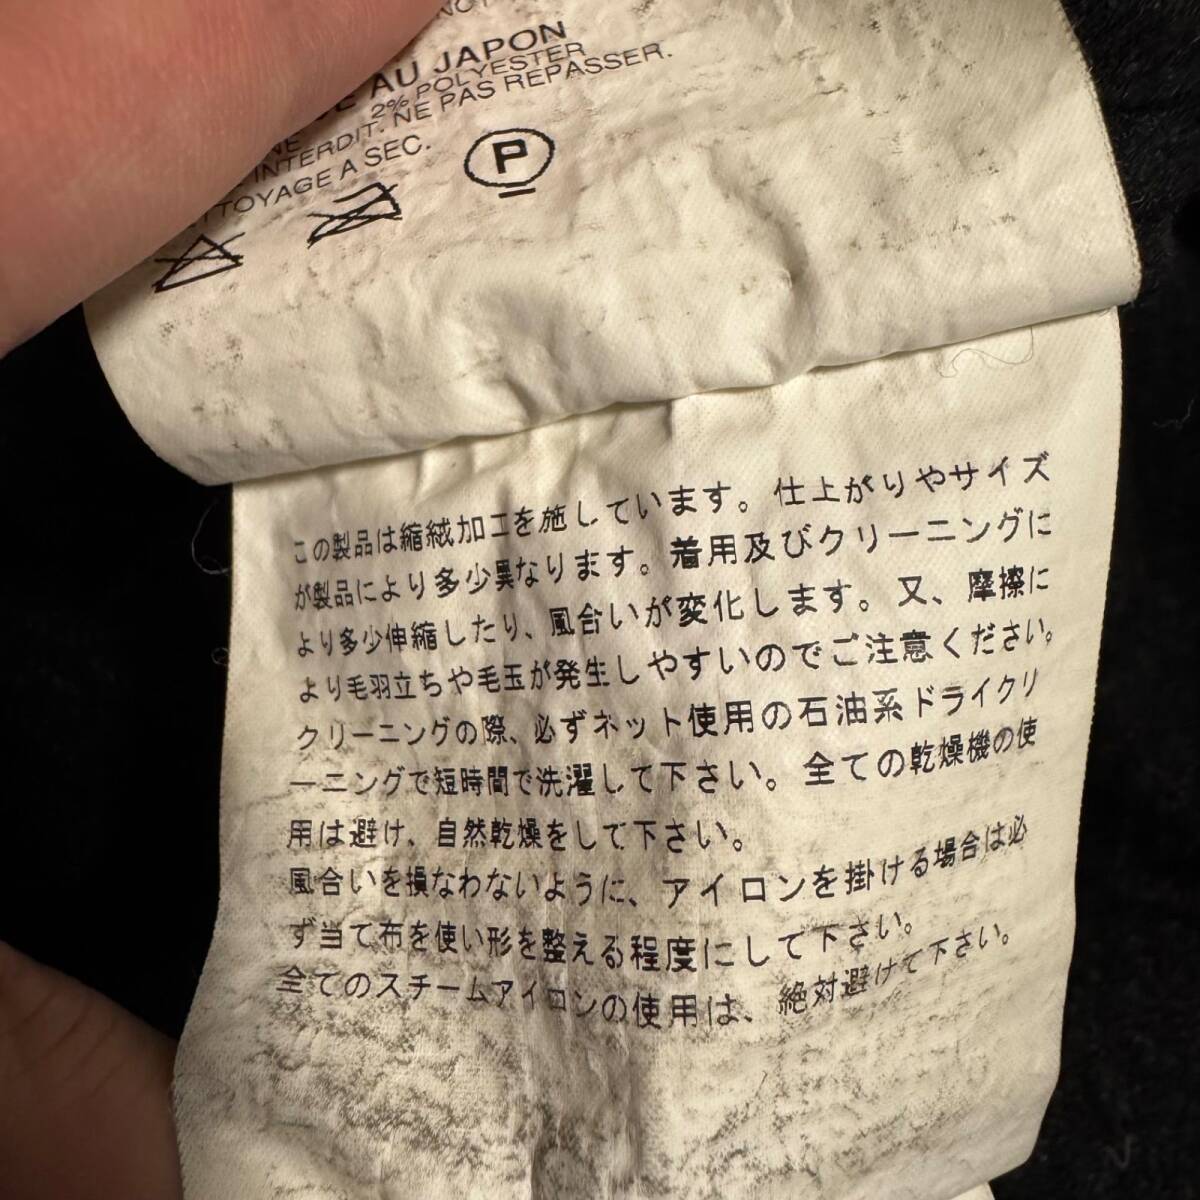 AU JAPON
2% POLYESTER
INTERDIT. NE PAS REPASSER.
A SEC.
P
この製品は縮絨加工を施しています。仕上がりやサイズ
が製品により多少異なります。着用及びクリーニングに
より多少伸縮したり、風合いが変化します。又、摩擦に
より毛羽立ちや毛玉が発生しやすいのでご注意ください。
クリーニングの際、必ずネット使用の石油系ドライクリ
ーニングで短時間で洗濯して下さい。全ての乾燥機の使
用は避け、自然乾燥をして下さい。
風合いを損なわないように、アイロンを掛ける場合は必
ず当て布を使い形を整える程度にして下さい。
全てのスチームアイロンの使用は、絶対避けて下さい。